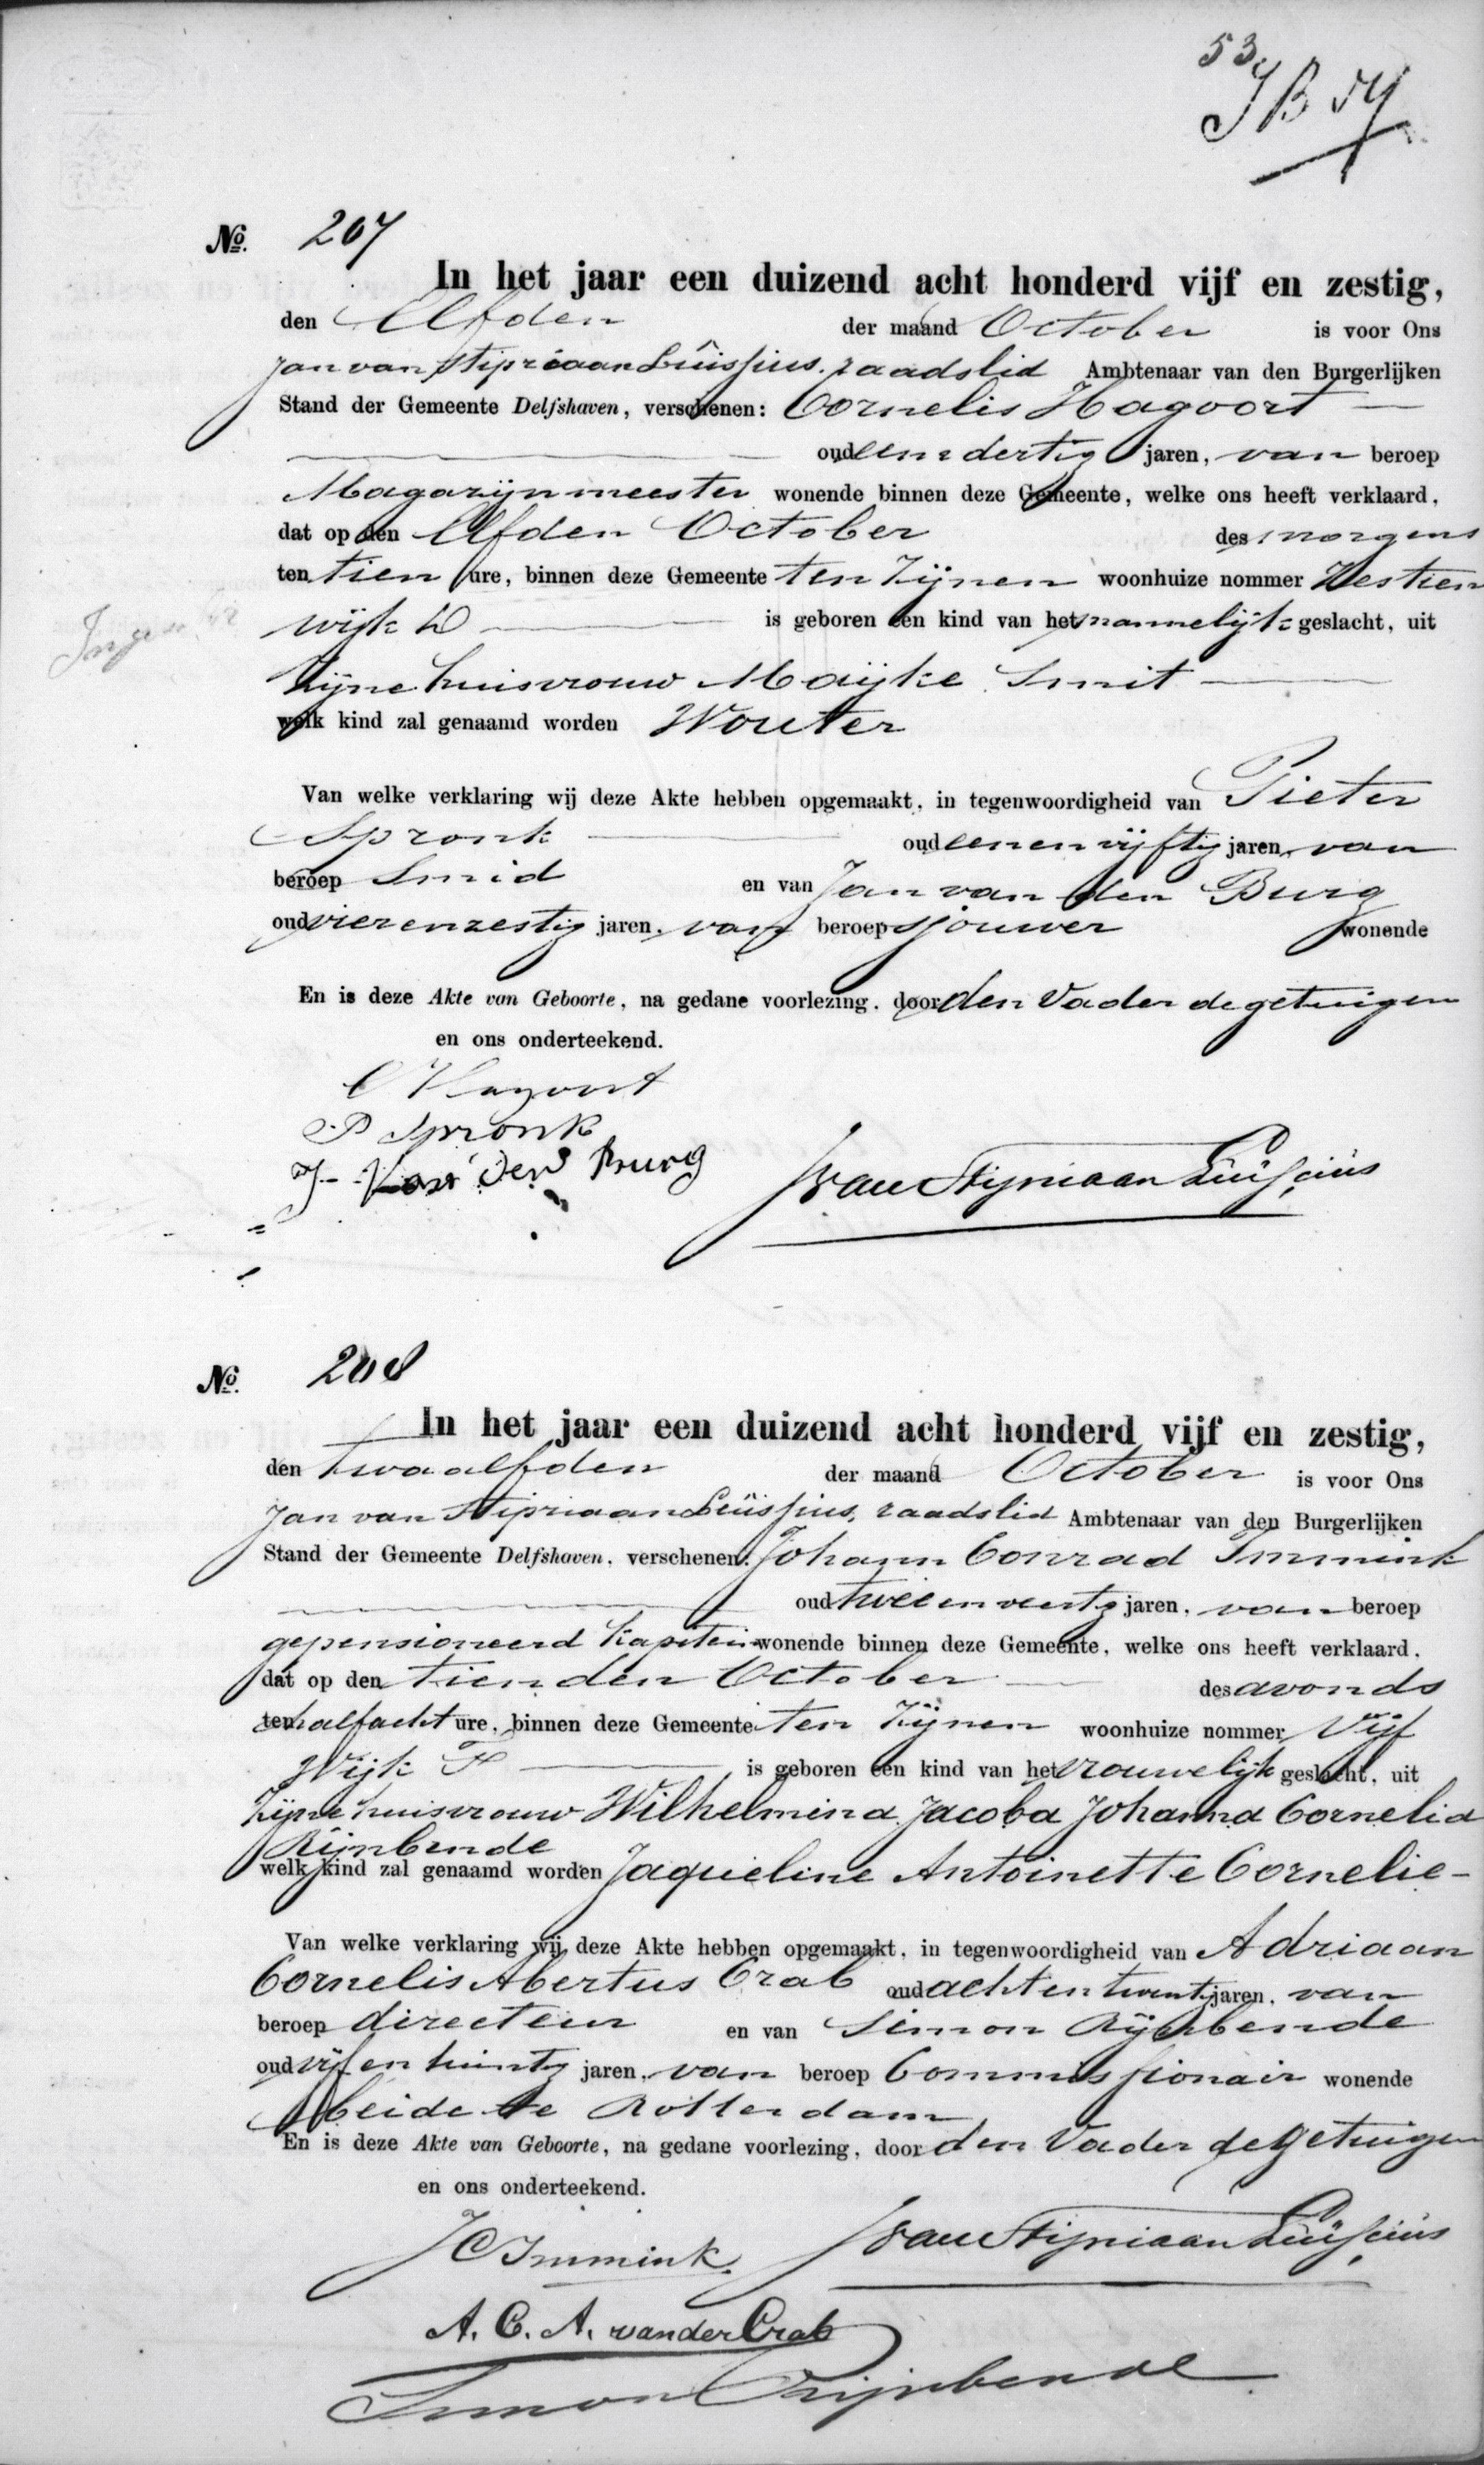 53
JB 54
No. 207
In het jaar een duizend acht honderd vijf en zestig,
den Elfden der maand October is voor Ons
Jan van Stipriaan Luissius, raadslid Ambtenaar van den Burgerlijken
Stand der Gemeente Delfshaven, verschenen: Cornelis Hagoort
oud een dertig jaren, van beroep
Magazijnmeester wonende binnen deze Gemeente, welke ons heeft verklaard,
dat op den Elfden October des morgens
ten tien ure, binnen deze Gemeente ten Zijnen woonhuize nommer Zestien
wijk D is geboren een kind van het mannelijk geslacht, uit
Zijne huisvrouw Maijke Smit
welk kind zal genaamd worden Wouter
Van welke verklaring wij deze Akte hebben opgemaakt, in tegenwoordigheid van Pieter
Spronk oud eenenvijftig jaren, van
beroep Smid en van Jan van den Burg
oud vierenzestig jaren, van beroep sjouwer wonende
En is deze Akte van Geboorte, na gedane voorlezing, door den Vader de getuigen
en ons onderteekend.
C Hagoort
P Spronk
J. Van den Burg
JvanStipriaan Luiscius
No. 208
In het jaar een duizend acht honderd vijf en zestig,
den twaalfden der maand October is voor Ons
Jan van Stipriaan Luissius, raadslid Ambtenaar van den Burgerlijken
Stand der Gemeente Delfshaven, verschenen: Johann Conrad Immink
oud tweeenveertig jaren, van beroep
gepensioneerd Kapitein wonende binnen deze Gemeente, welke ons heeft verklaard,
dat op den tienden October des avonds
ten halfacht ure, binnen deze Gemeente ten Zijnen woonhuize nommer Vijf
Wijk F is geboren een kind van het vrouwelijk geslacht, uit
Zijne huisvrouw Wilhelmina Jacoba Johanna Cornelia
Rijnbende
welk kind zal genaamd worden Jaqueline Antoinette Cornelie
Van welke verklaring wij deze Akte hebben opgemaakt, in tegenwoordigheid van Adriaan
Cornelis Abertus Crab oud achtentwintig jaren, van
beroep directeur en van Simon Rijnbende
oud vijfentwintig jaren, van beroep Commissionair wonende
beide te Rotterdam
En is deze Akte van Geboorte, na gedane voorlezing, door den Vader de getuigen
en ons onderteekend.
JC Immink.
JvanStipriaan Luiscius
A. C. A. van der Crab
Simon Rijnbende